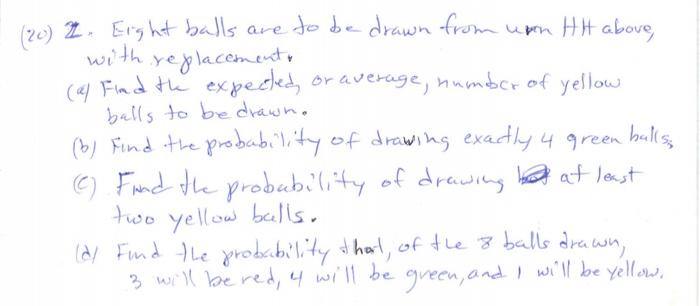 (20) 2. Eight balls are to be drawn from urn HH above,
with replacement.
(a) Find the expected, or average, number of yellow
balls to be drawn.
(b) Find the probability of drawing exactly 4 green balls.
(c) Find the probability of drawing at least
two yellow balls.
(d) Find the probability that, of the 8 balls drawn,
3 will be red, 4 will be green, and 1 will be yellow.